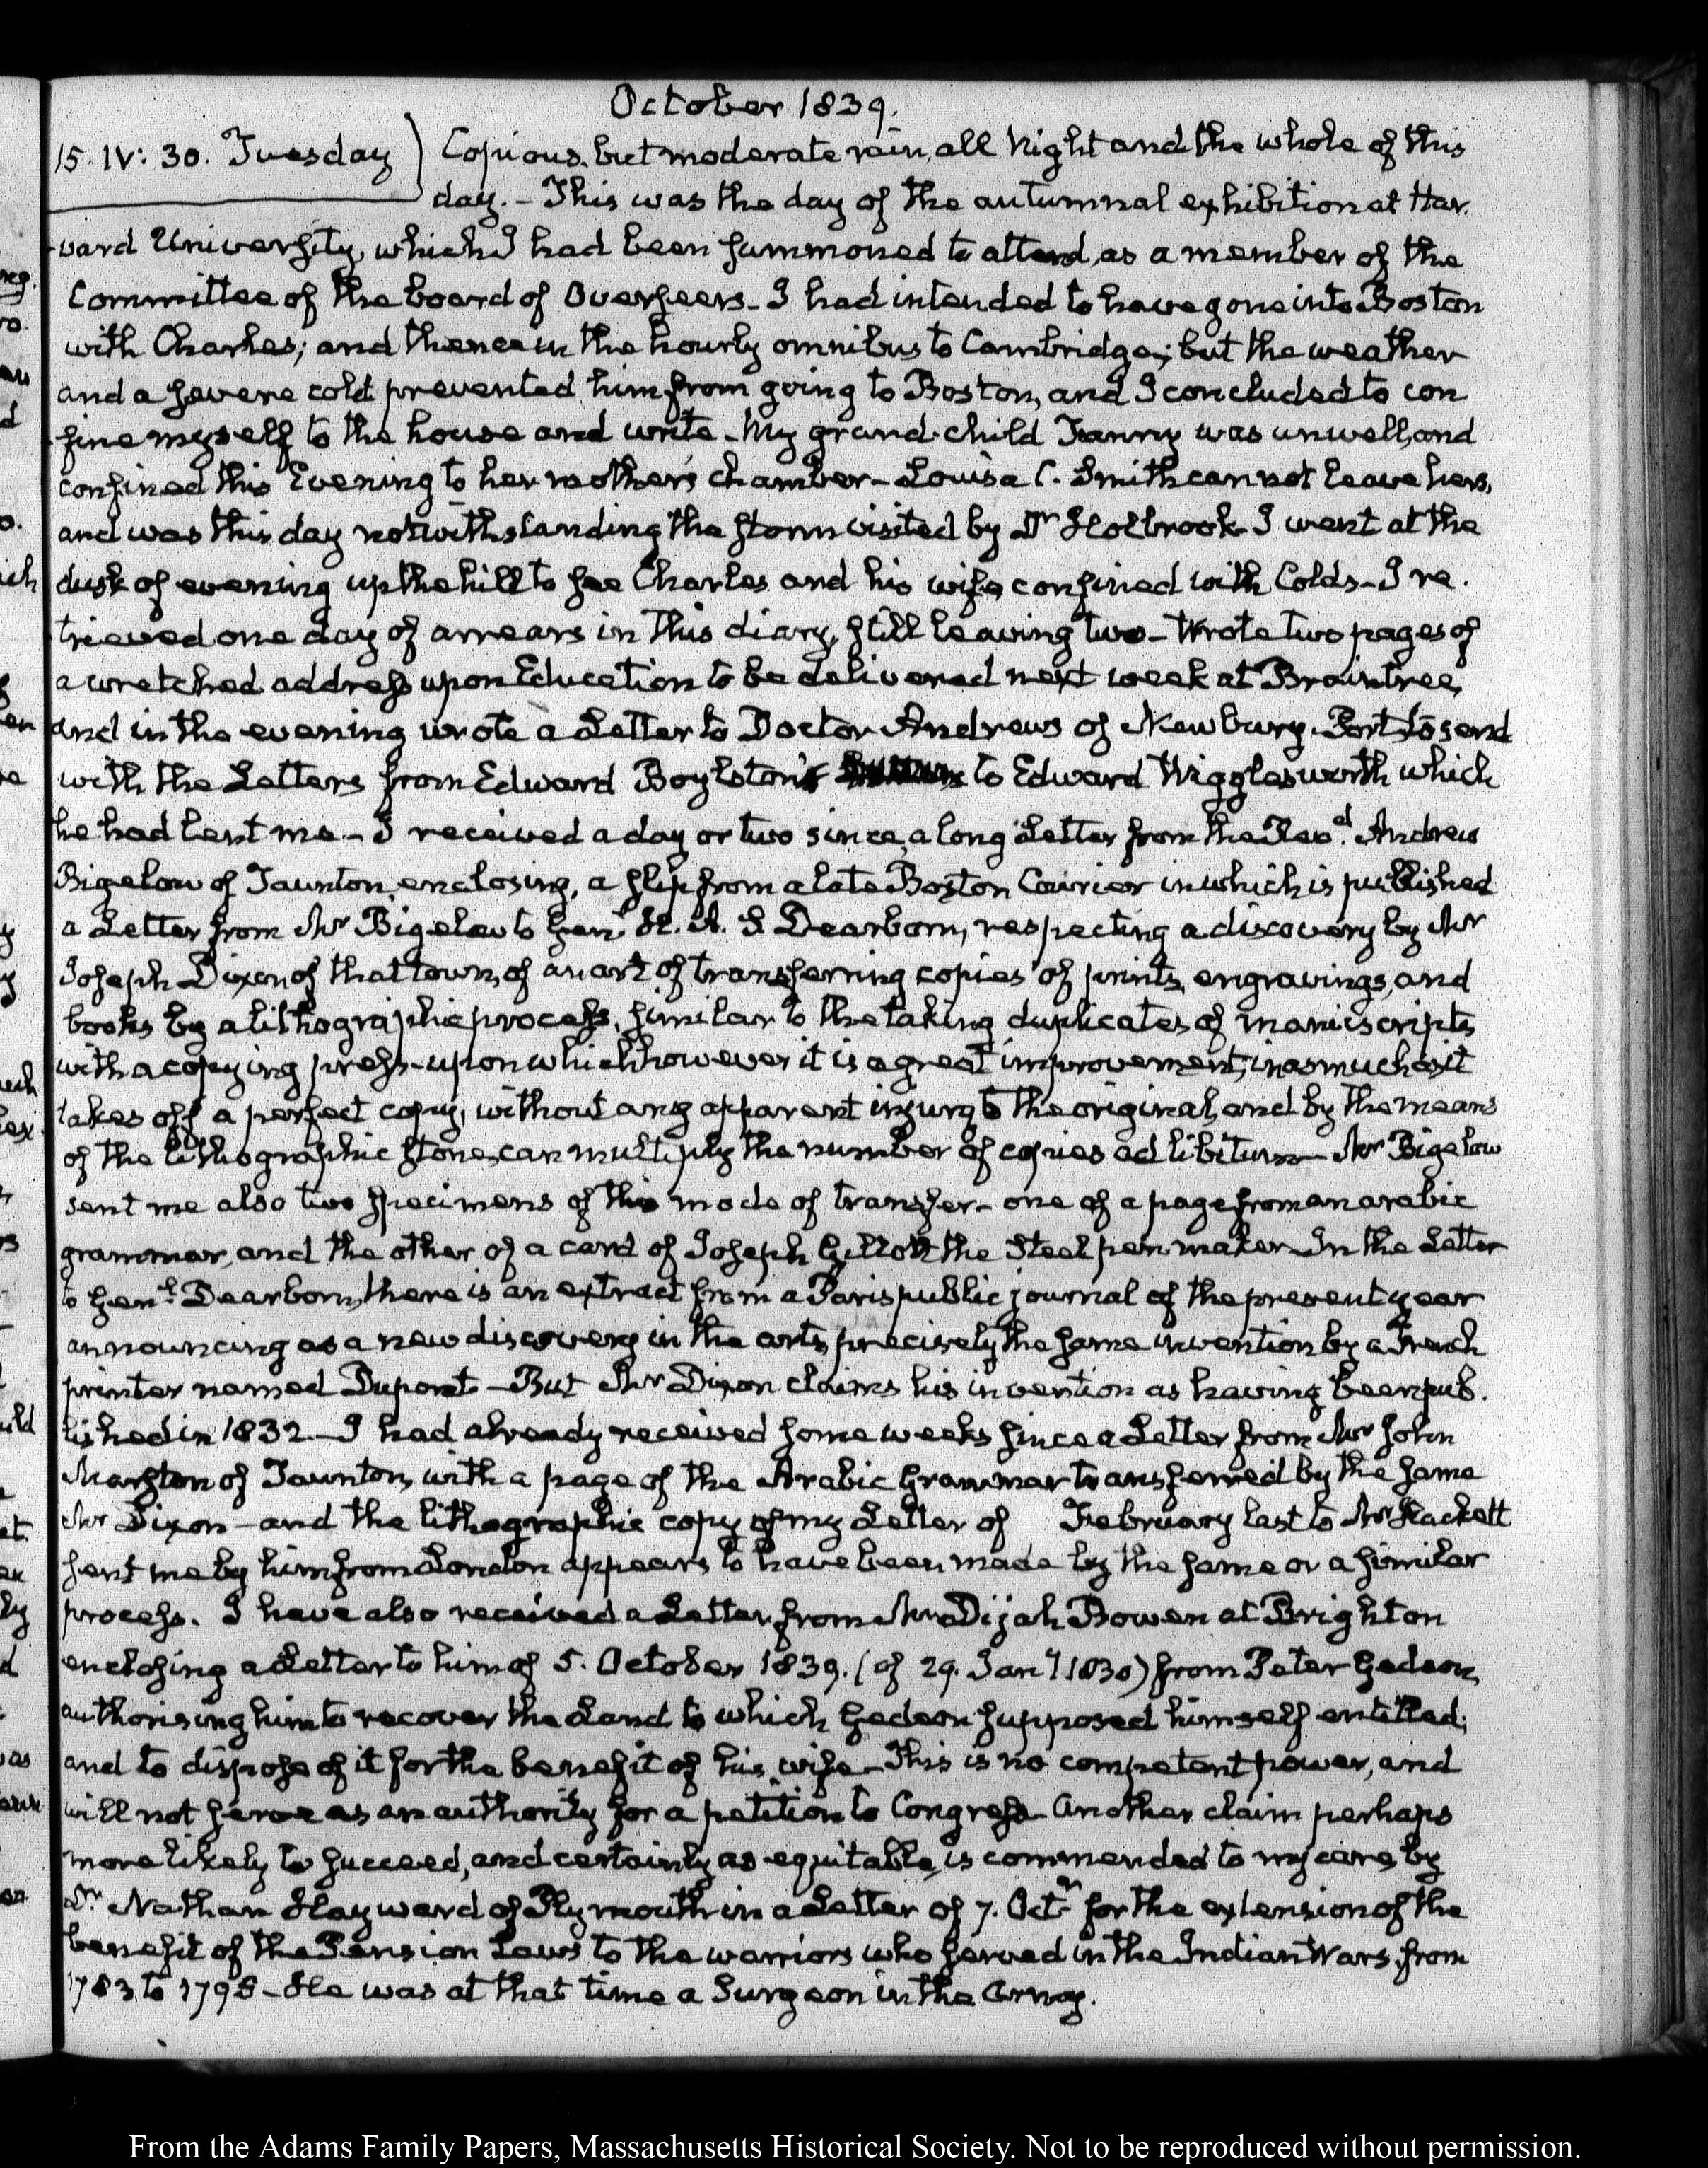 October 1839.
15. IV: 30. Tuesday) Copious, but moderate rain, all Night and the whole of this
day. - This was the day of the autumnal exhibition at Har-
vard University, which I had been summoned to attend, as a member of the
Committee of the board of Overseers - I had intended to have gone into Boston
with Charles; and thence in the hourly omnibus to Cambridge; but the weather
and a severe cold prevented him from going to Boston, and I concluded to con
fine myself to the house and write - My grand-child Fanny was unwell, and
confined this Evening to her mother's chamber - Louisa C. Smith cannot leave hers,
and was this day notwithstanding the storm visited by Dr Holbrook - I went at the
dusk of evening up the hill to see Charles and his wife confined with Colds - I re-
trieved one day of arrears in this diary, still leaving two - Wrote two pages of
a wretched address upon Education to be delivered next week at Braintree,
and in the evening wrote a Letter to Doctor Andrews of Newbury-Port to send
with the Letters from Edward Boylston to Edward Wigglesworth which
he had lent me - I received a day or two since, a long Letter from the Revd. Andrew
Bigelow of Taunton, enclosing, a slip from a late Boston Courier in which is published
a Letter from Mr Bigelow to Genl. H. A. S. Dearborn, respecting a discovery by Mr
Joseph Dixon of that town, of an art of transferring copies of prints, engravings, and
books by a lithographic process, similar to the taking duplicates of manuscripts
with a copying press - upon which however it is a great improvement, inasmuch as it
takes off a perfect copy, without any apparent injury to the original, and by the means
of the lithographic stone, can multiply the number of copies ad libitum - Mr Bigelow
sent me also two specimens of this mode of transfer - one of a page from an arabic
grammar, and the other of a card of Joseph Gillott the Steel pen maker - In the Letter
to Genl. Dearborn, there is an extract from a Paris public journal of the present year
announcing as a new discovery in the arts, precisely the same invention by a French
printer named Dupont - But Mr Dixon claims his invention as having been pub-
lished in 1832. - I had already received some weeks since a Letter from Mr John
Marston of Taunton, with a page of the Arabic Grammar transferred by the same
Mr Dixon - and the lithographic copy of my Letter of February last to Mr Hackett
sent me by him from London appears to have been made by the same or a similar
process. I have also received a Letter from Mr Dijah Bowen at Brighton
enclosing a Letter to him of 5. October 1839. (of 29. Jany 1830) from Peter Gedeon,
authorising him to recover the Land to which Gedeon supposed himself entitled;
and to dispose of it for the benefit of his wife - This is no competent power, and
will not serve as an authority for a petition to Congress - Another claim perhaps
more likely to succeed, and certainly as equitable, is commended to my care by
Dr Nathan Hayward of Plymouth in a Letter of 7. Octr. for the extension of the
benefit of the Pension Laws to the warriors who served in the Indian Wars, from
1783 to 1795 - He was at that time a Surgeon in the Army.
From the Adams Family Papers, Massachusetts Historical Society. Not to be reproduced without permission.